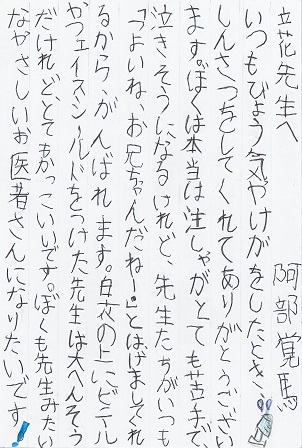 立花先生へ
阿部覚馬
いつもびょう気やけがをしたとき、
しんさつをしてくれてありがとうござい
ます。ぼくは本当は注しゃがとても苦手で
泣きそうになるけれど、先生たちがいつも
「つよいね、お兄ちゃんだねー。」とはげましてくれ
るから、がんばれます。白衣の上にビニール
やフェイスシールドをつけた先生は大へんそう
だけれど、とてもかっこいいです。ぼくも先生みたい
なやさしいお医者さんになりたいです!